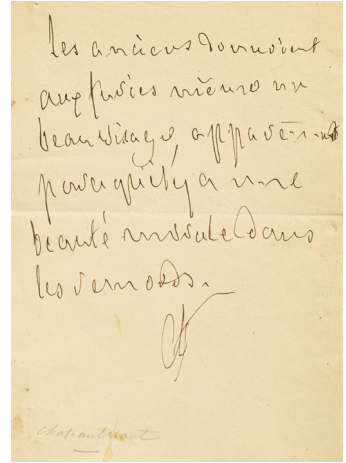 Les anciens donnoient
aux furies mêmes un
beau visage, apparemment
parcequ'il y a une
beauté morale dans
les remords.
chateaubriant